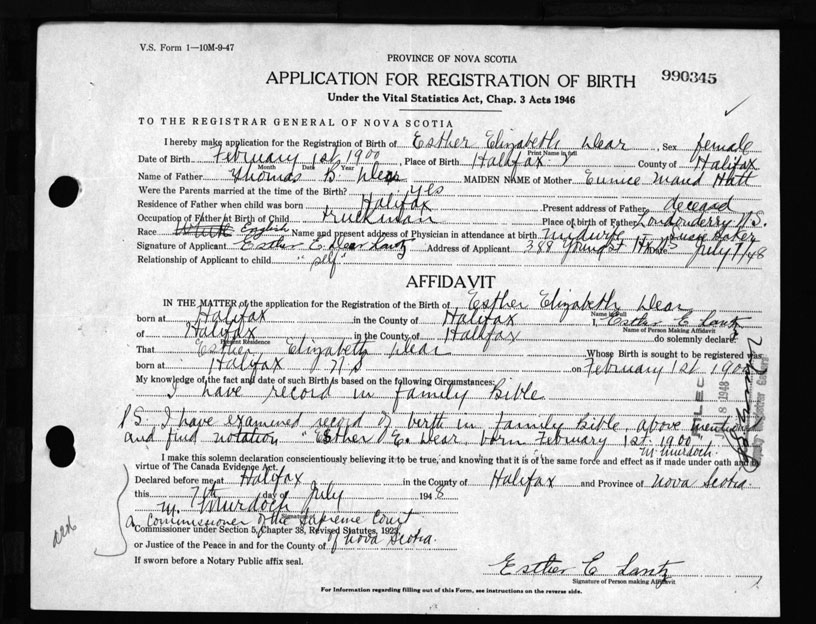 V.S. Form 1—10M-9-47
PROVINCE OF NOVA SCOTIA
APPLICATION FOR REGISTRATION OF BIRTH 990345
Under the Vital Statistics Act, Chap. 3 Acts 1946
TO THE REGISTRAR GENERAL OF NOVA SCOTIA
I hereby make application for the Registration of Birth of Esther Elizabeth Dear, Sex female
Print Name in full
Date of Birth February 1st, 1900, Place of Birth Halifax County of Halifax
Month Date Year
Name of Father Thomas D. Dear MAIDEN NAME of Mother Eunice Maud Hatt
Were the Parents married at the time of the Birth? yes
Residence of Father when child was born Halifax Present address of Father deceased
Occupation of Father at Birth of Child Truckman Place of birth of Father Londonderry N.S.
Race White English Name and present address of Physician in attendance at birth Midwife Baker
Signature of Applicant Esther E. Dear Lantz Address of Applicant 388 Young St Date July 7/48
Relationship of Applicant to child "self"
AFFIDAVIT
IN THE MATTER of the application for the Registration of the Birth of Esther Elizabeth Dear
Name in Full
born at Halifax in the County of Halifax I, Esther E Lantz
Name of Person Making Affidavit
of Halifax in the County of Halifax do solemnly declare
Present Residence
That Esther Elizabeth Dear Whose Birth is sought to be registered was
born at Halifax N S on February 1st 1900
My knowledge of the fact and date of such Birth is based on the following Circumstances:
I have record in family Bible
P.S. I have examined record of birth in family Bible, above mentioned
and find notation "Esther E. Dear, born February 1st. 1900"
M. Murdoch
I make this solemn declaration conscientiously believing it to be true, and knowing that it is of the same force and effect as if made under oath and
virtue of The Canada Evidence Act.
Declared before me at Halifax in the County of Halifax and Province of Nova Scotia
this 7th day of July 1948
M. Murdoch
Signature
a Commissioner of the Supreme Court
Commissioner under Section 5, Chapter 38, Revised Statutes, 1923
or Justice of the Peace in and for the County of of Nova Scotia.
If sworn before a Notary Public affix seal.
Esther E Lantz
Signature of Person making Affidavit
For Information regarding filling out of this Form, see instructions on the reverse side.